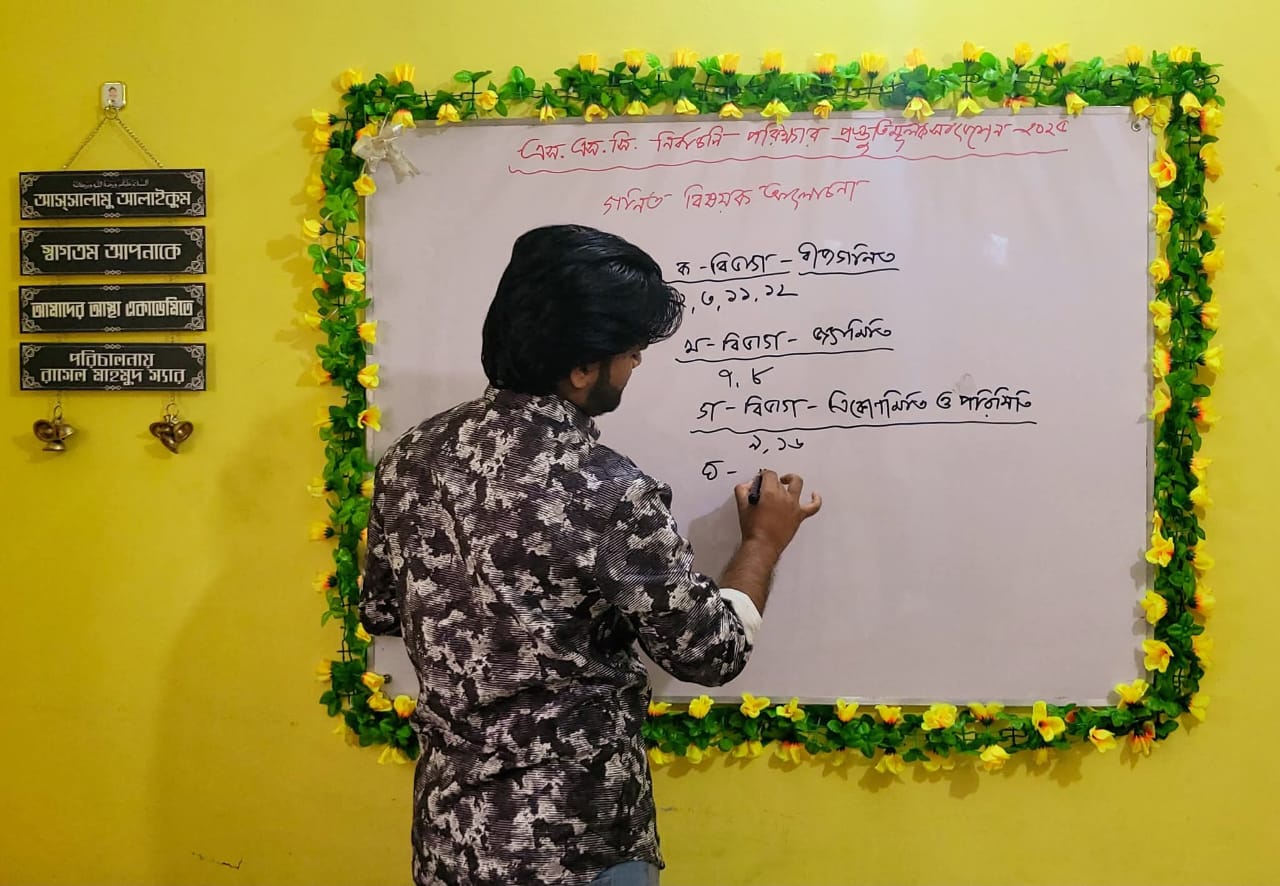 আস্সালামু আলাইকুম
স্বাগতম আপনাকে
আমাদের আস্থা একাডেমিতে
পরিচালনায়
রাসেল মাহমুদ স্যার
এস. এস. সি. নির্বাচনি পরিক্ষার প্রস্তুতিমূলক আলোচনা - ২০২৫
গনিত বিষয়ক আলোচনা
ক - বিভাগ - বীজগনিত
, ৩, ১১, ১২
খ - বিভাগ - জ্যামিতি
৭, ৮
গ - বিভাগ - ত্রিকোণমিতি ও পরিমিতি
৯, ১৬
ঘ -